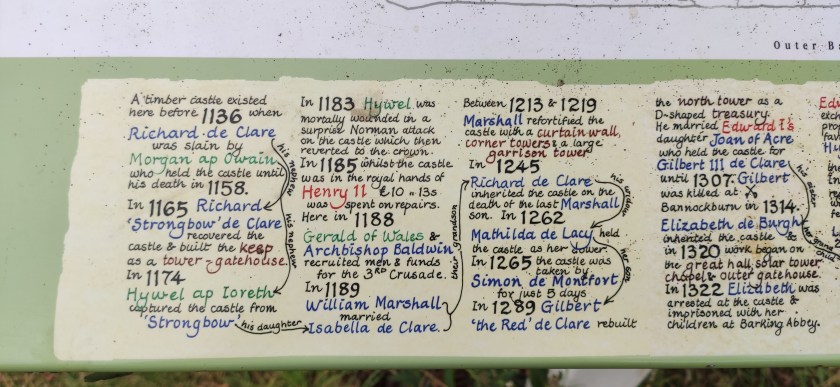 Outer B
A timber castle existed
here before 1136 when
Richard de Clare
was slain by
Morgan ap Owain
who held the castle until
his death in 1158.
In 1165 Richard
'Strongbow' de Clare
recovered the
castle & built the keep
as a tower-gatehouse.
In 1174
Hywel ap Ioreth
captured the castle from
'Strongbow'
his nephew
his nephew
his daughter
In 1183 Hywel was
mortally wounded in a
surprise Norman attack
on the castle which then
reverted to the crown.
In 1185 whilst the castle
was in the royal hands of
Henry 11 £10 .. 13s
was spent on repairs.
Here in 1188
Gerald of Wales &
Archbishop Baldwin
recruited men & funds
for the 3RD Crusade.
In 1189
William Marshall
married
Isabella de Clare.
their grandson
Between 1213 & 1219
Marshall refortified the
castle with a curtain wall,
corner towers & a large
garrison tower.
In 1245
Richard de Clare
inherited the castle on the
death of the last Marshall
son. In 1262
Mathilda de Lacy held
the castle as her dower.
In 1265 the castle was
taken by
Simon de Montfort
for just 5 days
In 1289 Gilbert
'the Red' de Clare rebuilt
his widow
her son
the north tower as a
D-shaped treasury.
He married Edward I's
daughter Joan of Acre
who held the castle for
Gilbert III de Clare
until 1307. Gilbert
was killed at
Bannockburn in 1314.
Elizabeth de Burgh
inherited the castle &
in 1320 work began on
the great hall, solar tower,
chapel & outer gatehouse.
In 1322 Elizabeth was
arrested at the castle &
imprisoned with her
children at Barking Abbey.
his sister